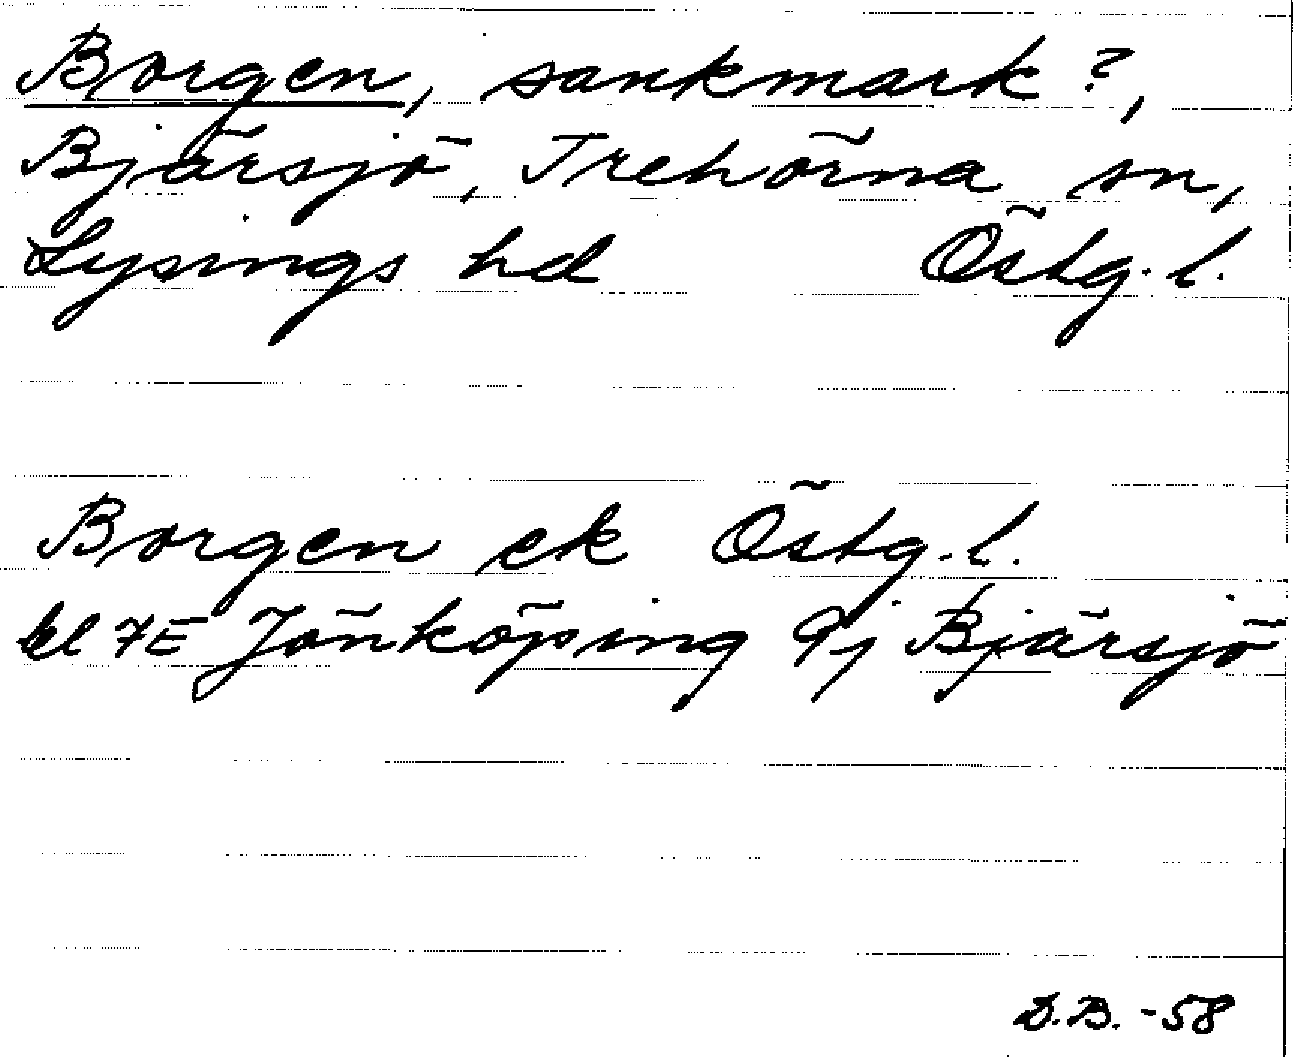 Borgen, sankmark?,
Bjärsjö, Trehörna sn,
Lysings hd Östg.l.
Borgen ek Östg.l.
bl 7E Jönköping 9j Bjärsjö
D.B. -58